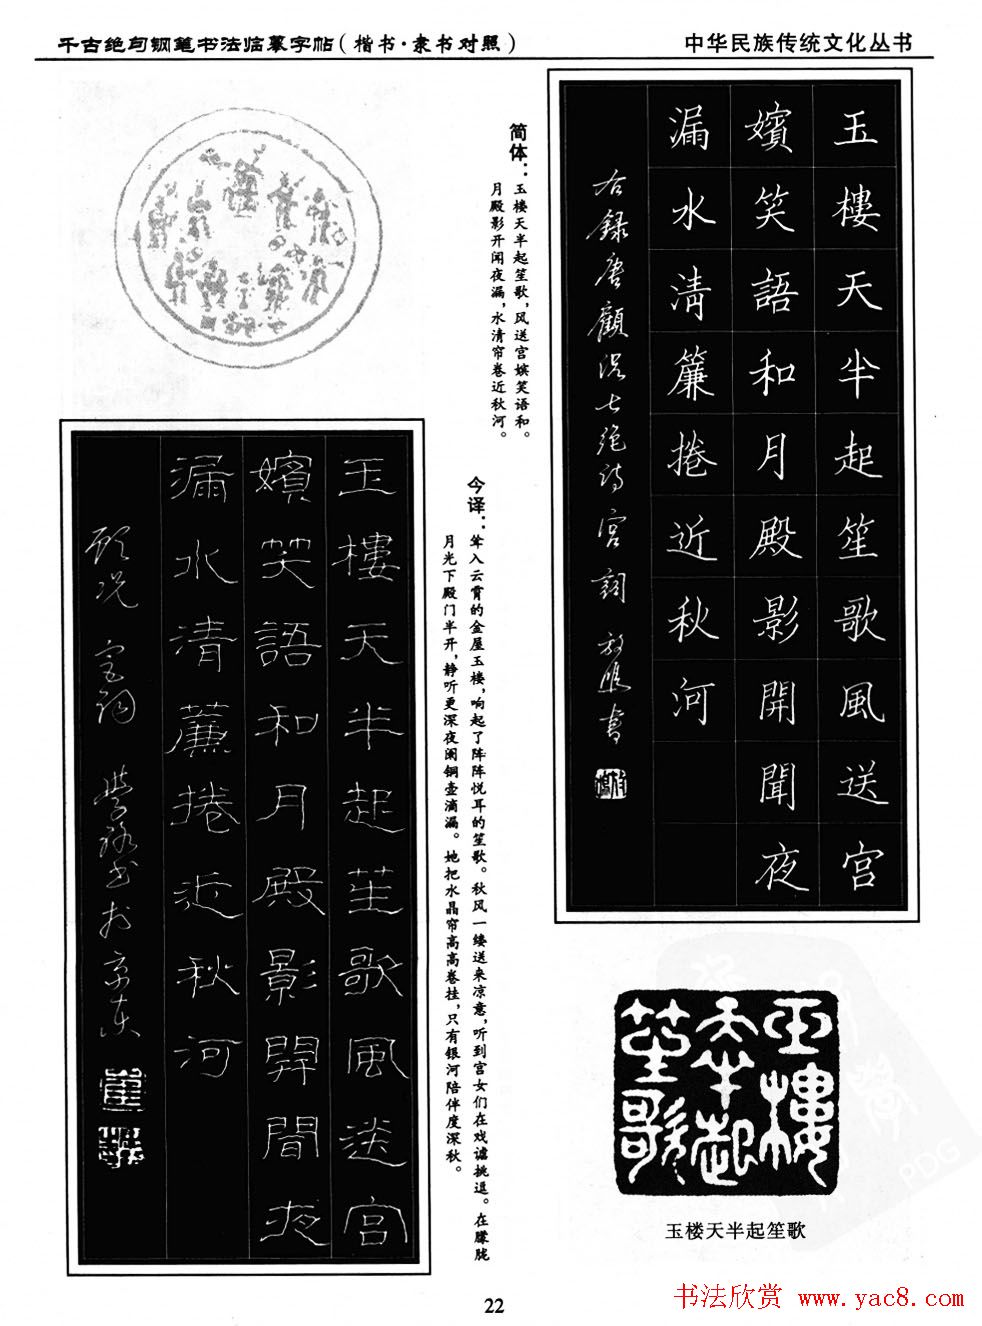 千古绝句钢笔书法临摹字帖(楷书·隶书对照)
中华民族传统文化丛书
玉樓天半起笙歌風送宮
嬪笑語和月殿影開聞夜
漏水清簾捲近秋河
右録唐顧況七絶詩宮詞
書
简体:玉楼天半起笙歌,风送宫嫔笑语和。
月殿影开闻夜漏,水清帘卷近秋河。
今译:耸入云霄的金屋玉楼,响起了阵阵悦耳的笙歌。秋风一缕送来凉意,听到宫女们在戏谑挑逗。在朦胧
月光下殿门半开,静听更深夜阑铜壶滴漏。她把水晶帘高高卷挂,只有银河陪伴度深秋。
玉樓天半起笙歌風送宮
嬪笑語和月殿影開聞夜
漏水清簾捲近秋河
顾况 宫词
书于京东
玉樓
天半起
笙歌
玉楼天半起笙歌
22
书法欣赏 www.yac8.com
PDG